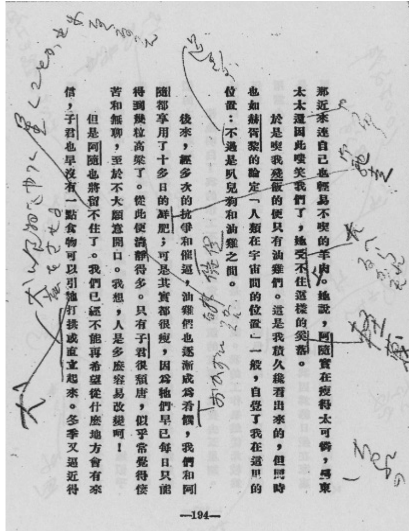 那近來連自己也輕易不喫的羊肉。她說,阿隨實在瘦得太可憐,房東
太太還因此嗤笑我們了,她受不住這樣的奚落。
於是喫我殘飯的便只有油雞們。這是我積久纔看出來的,但同時
也如赫胥黎的論定「人類在宇宙間的位置」一般,自覺了我在這里的
位置:不過是叭兒狗和油雞之間。
後來,經多次的抗爭和催逼,油雞們也逐漸成為肴饌,我們和阿
隨都享用了十多日的鮮肥;可是其實都很瘦,因為牠們早已每日只能
得到幾粒高粱了。從此便清靜得多。只有子君很頹唐,似乎常覺得悽
苦和無聊,至於不大願意開口。我想,人是多麼容易改變呵!
但是阿隨也將留不住了。我們已經不能再希望從什麼地方會有來
信,子君也早沒有一點食物可以引牠打拱或直立起來。冬季又逼近得
—194—